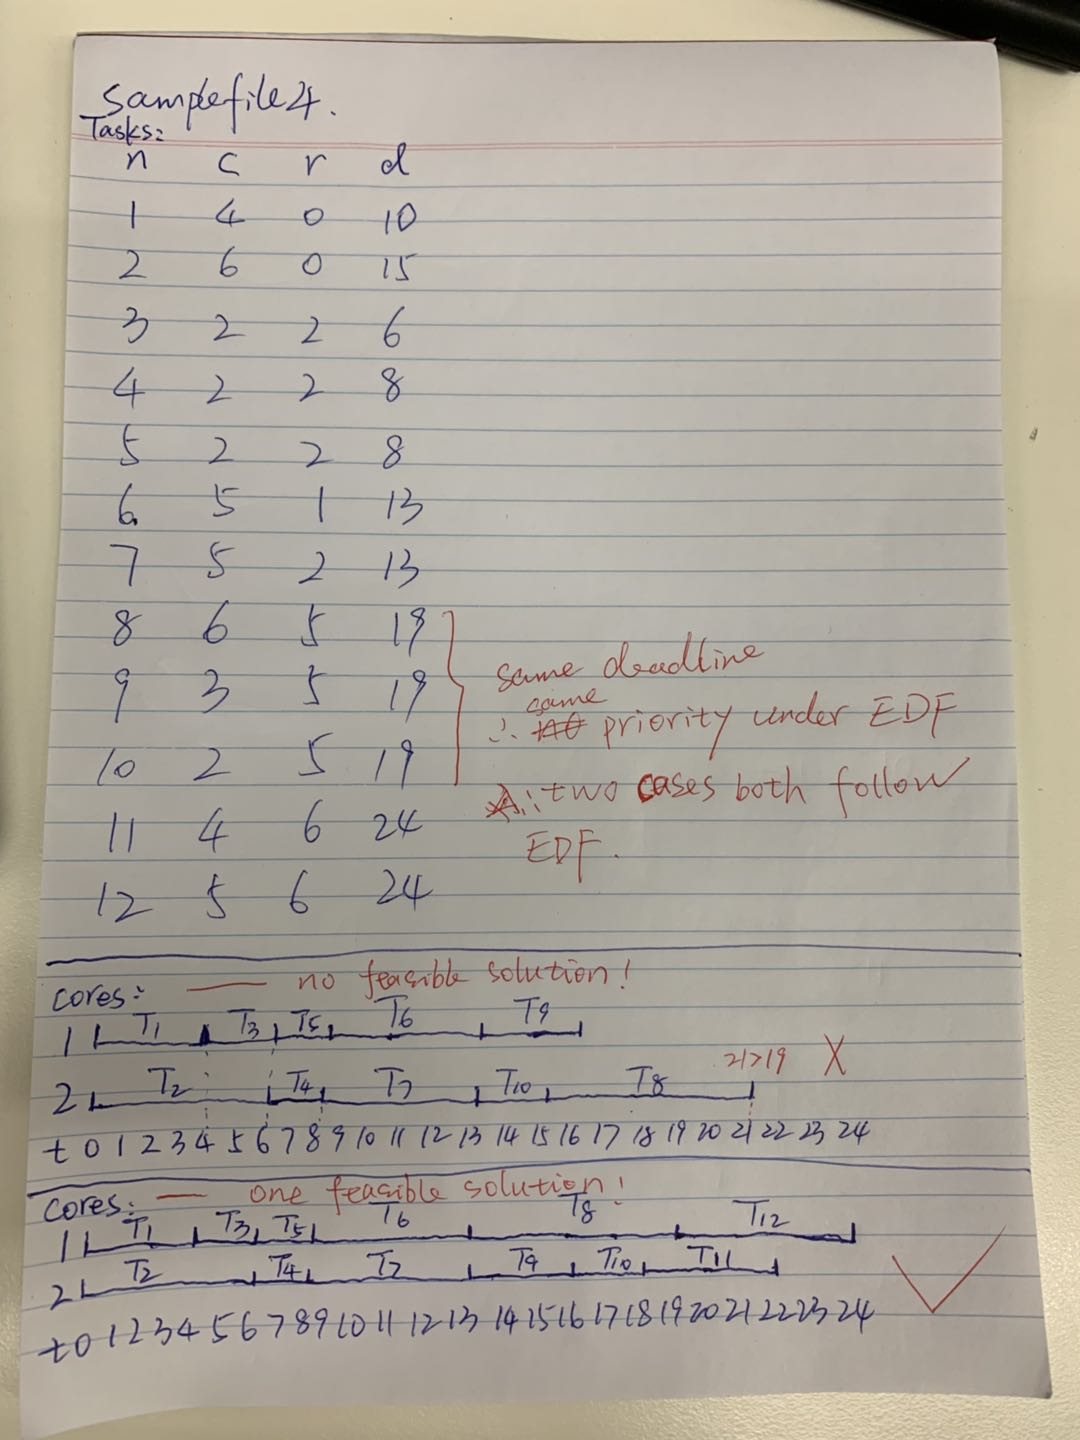 samplefile4.
Tasks:
n c r d
1 4 0 10
2 6 0 15
3 2 2 6
4 2 2 8
5 2 2 8
6 5 1 13
7 5 2 13
8 6 5 19
9 3 5 19
10 2 5 19
11 4 6 24
12 5 6 24
same deadline
same
∴ priority under EDF
∴ two cases both follow
EDF.
cores: — no feasible solution!
1 T1 T3 T5 T6 T9
21>19 X
2 T2 T4 T7 T10 T8
t 0 1 2 3 4 5 6 7 8 9 10 11 12 13 14 15 16 17 18 19 20 21 22 23 24
cores: — one feasible solution!
1 T1 T3 T5 T6 T8 T12
2 T2 T4 T7 T9 T10 T11
t 0 1 2 3 4 5 6 7 8 9 10 11 12 13 14 15 16 17 18 19 20 21 22 23 24